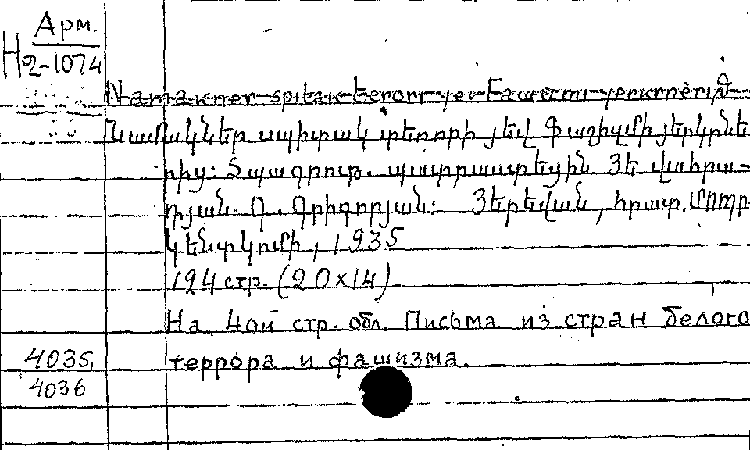 Арм.
Н2-1074
Namakner spitak terorr yev Fašizmi yerkrneric
Նամակներ սպիտակ տեռորի յեվ Ֆաշիզմի յերկրնե
րից: Տպագրութ. պատրաստեցին Յե. Վահրա-
դյան Գրիգորյան: Յերեվան, հրատ. Մոպր
Կենտկոմի, 1935
124 стр. (20×14)
На 4ой стр. обл. Письма из стран белого
4035, террора и фашизма.
4036